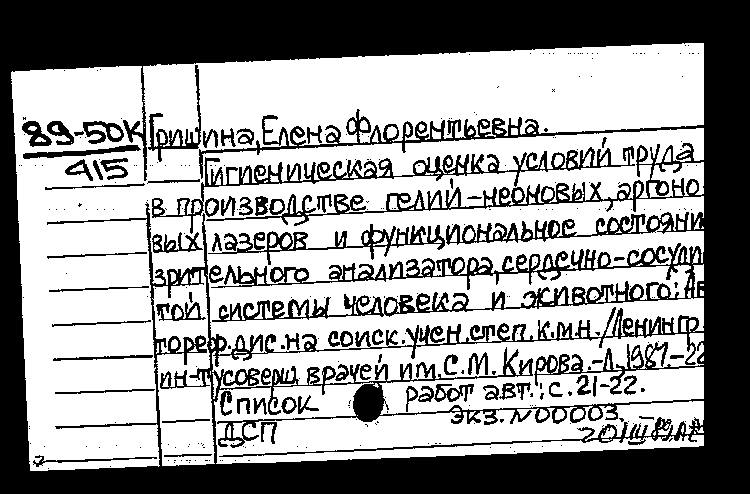 89-50К Гришина, Елена Флорентьевна.
415 Гигиеническая оценка условий труда
в производстве гелий-неоновых, аргоно
вых лазеров и функциональное состояни
зрительного анализатора, сердечно-сосуди
той системы человека и животного: Ав
тореф. дис. на соиск. учен. степ. к.м.н. / Ленингр.
ин-т усоверш. врачей им. С.М. Кирова. -Л., 1987. -22
Список работ авт.: с. 21-22.
Экз. N 00003.
ДСП